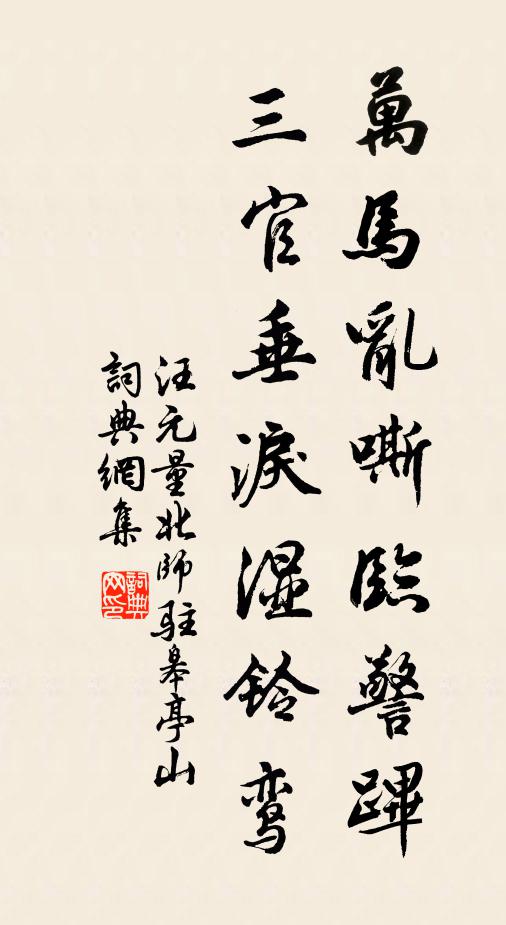 萬馬亂嘶臨警蹕
三官垂淚濕鈴鸾
汪元量北師駐皋亭山
詞典網集
詞典网印